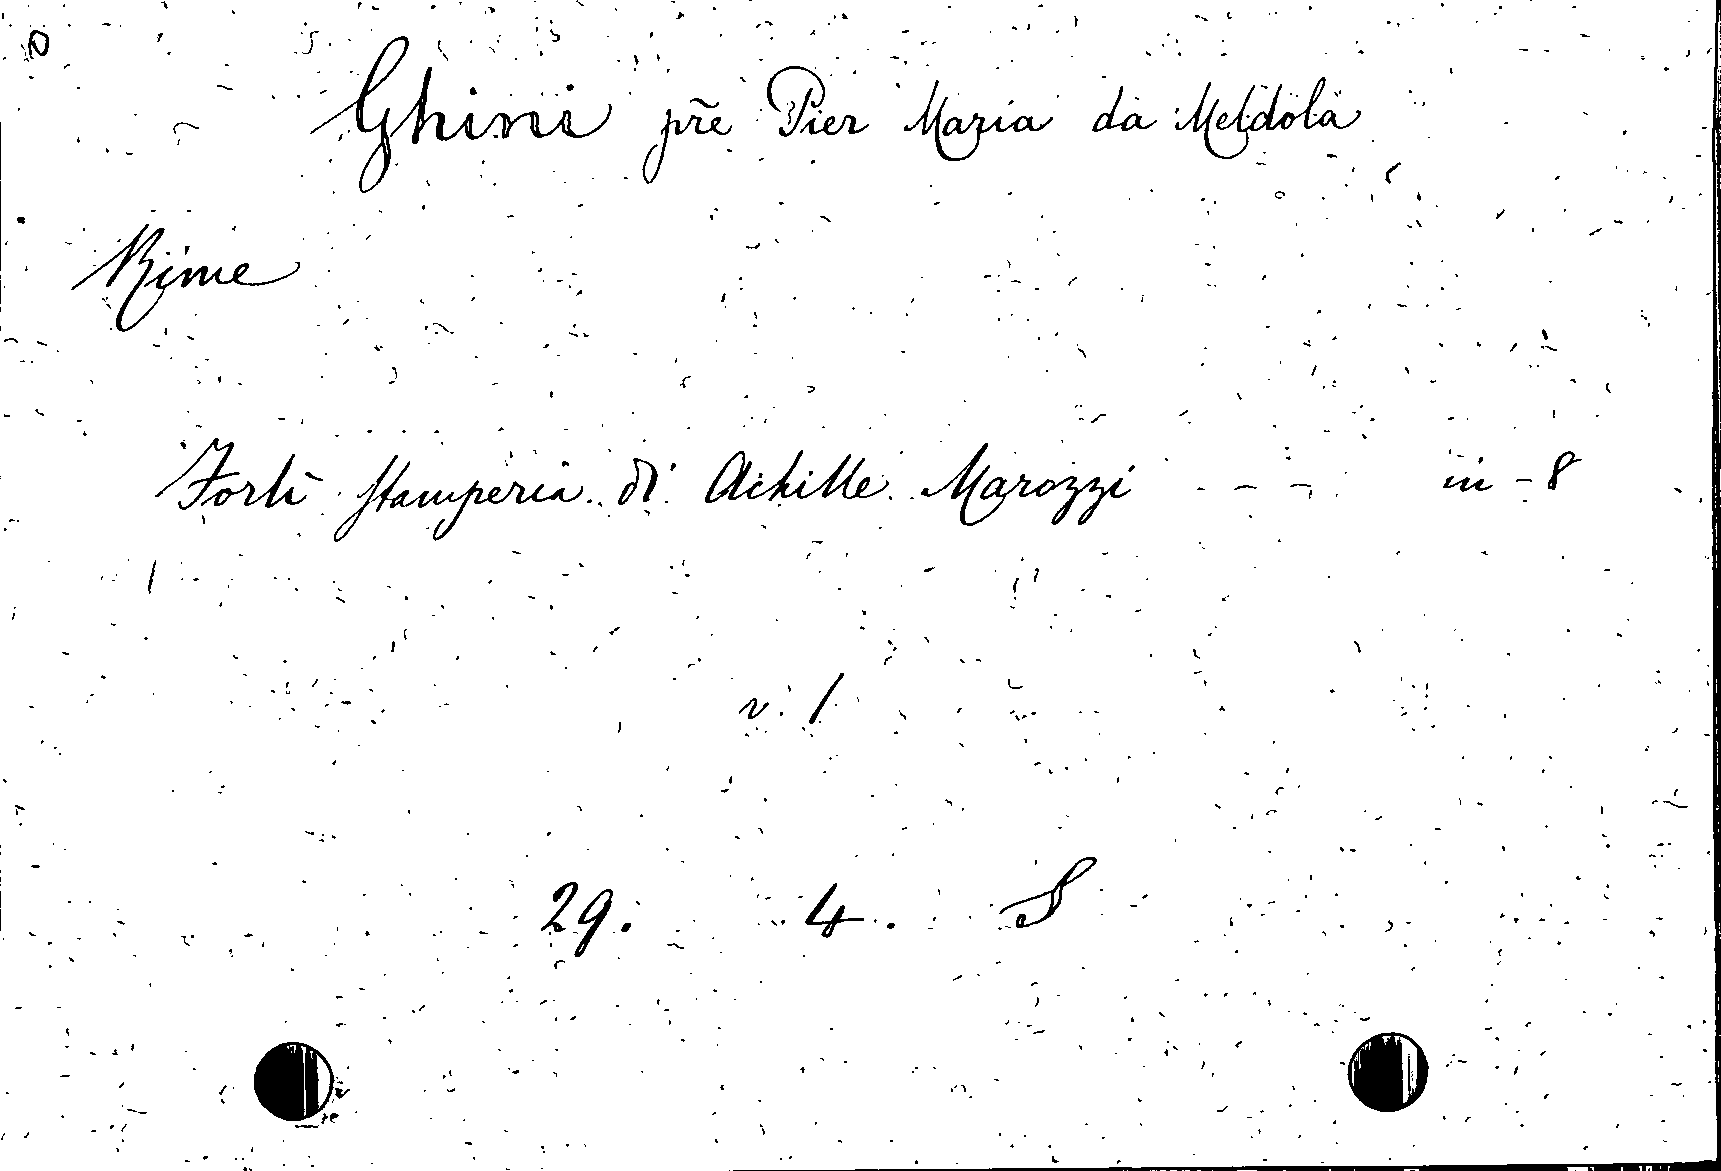 Ghini pr̃e Pier Maria da Meldola
Rime
Forlì Stamperia di Achille Marozzi - - - in - 8
v. 1
29. 4. S